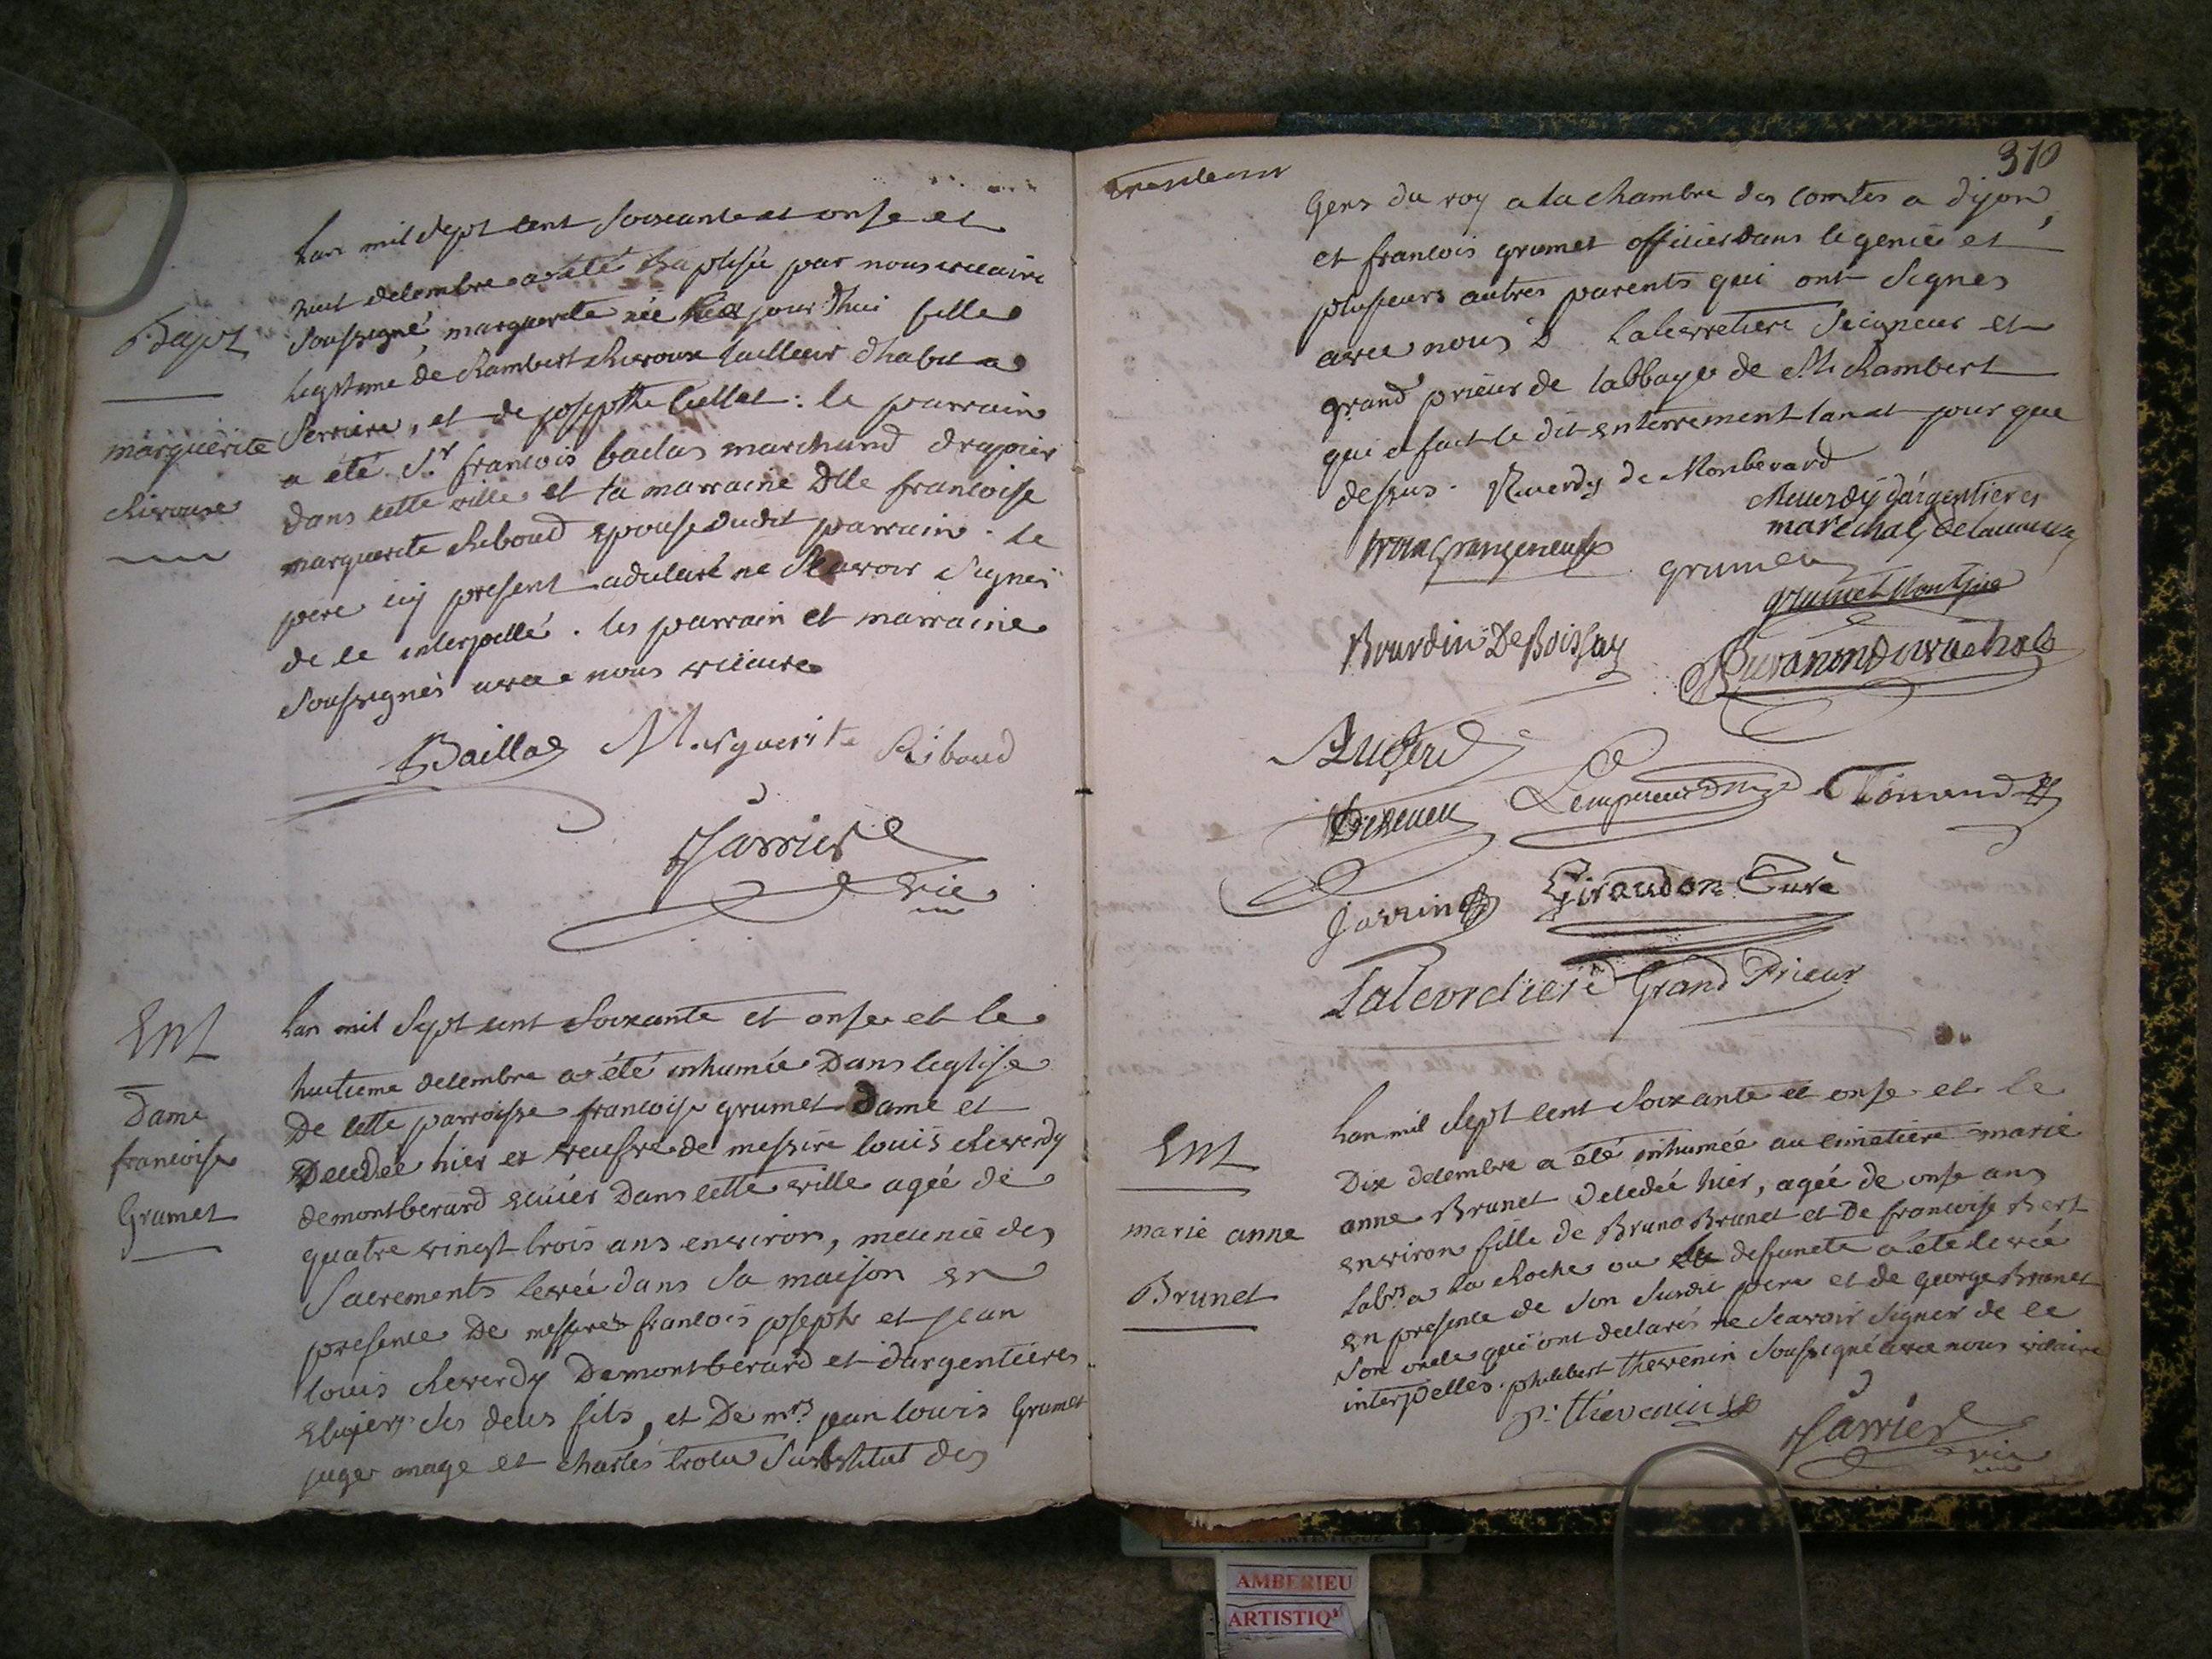 Lan mil Sept cent Soixante et onse et
huit decembre a été Baptisée par nous vicaire
Bapt
Soussigné, marguerite née jourdhui fille
legitime de Rambert Chiroux tailleur dhabit a
marguerite
Serriere, et de josepthe Cullet : le parrain
a été S.r francois bailas marchand drapier
Chiroux
dans cette ville et la marraine Dlle francoise
marguerite Riboud epouse dudit parrain . le
pere icy present a declaré ne Scavoir Signer
de ce interpellé . les parrain et marraine
Soussignés avec nous vicaire
Baillas Marguerite Riboud
Jarrier
vic
Ent
Lan mil Sept cent Soixante et onse et le
huitieme decembre a été inhumée Dans leglise
Dame
De cette parroisse francoise grumet Dame et
francoise
Decedée hier et veufve de messire louis Reverdy
demontberard ecuier Dans cette ville ageé de
Grumet
quatre vingt trois ans environ, meunie des
Sacrements levée dans Sa maison en
presence De messires francois joseph et jean
louis Reverdy Demontberard et dargentieres
Ecuiers Ses deux fils, et De mrs jean louis Grumet
juge mage et charles trocu Substitut des
310
Gens du roy a la chambre des comtes a dijon,
et francois grumet officier dans le genie et
plusieurs autres parents qui ont Signes
avec nous D Laleverretiere Seigneur et
grand prieur de labbaye de St Rambert
qui a fait le dit enterrement lan et jour que
dessus . Reverdy de Monberard
Reverdÿ d'argentieres
marechal Delacurea
grumet
grumet Montpie
Bourdin De Boissay
Auger
Tenand
Jarrin Giraudon Curé
Grand Prieur
Ent
Lan mil Sept cent Soixante et onse et le
Dix decembre a été inhumée au cimetiere marie
marie anne
anne Brunet decedée hier, ageé de onse ans
environ fille de Bruno Brunet et De francoise Bert
Brunet
labrs a la Roche ou la defuncte a été levée
en presence de Son Susdit pere et de george Brunet
Son oncle qui ont declarés ne Scavoir Signer de ce
interpellés . philibert thevenin Soussigné avec nous vicaire
p: thevenin
Jarrier
vic
AMBERIEU
ARTISTIQ